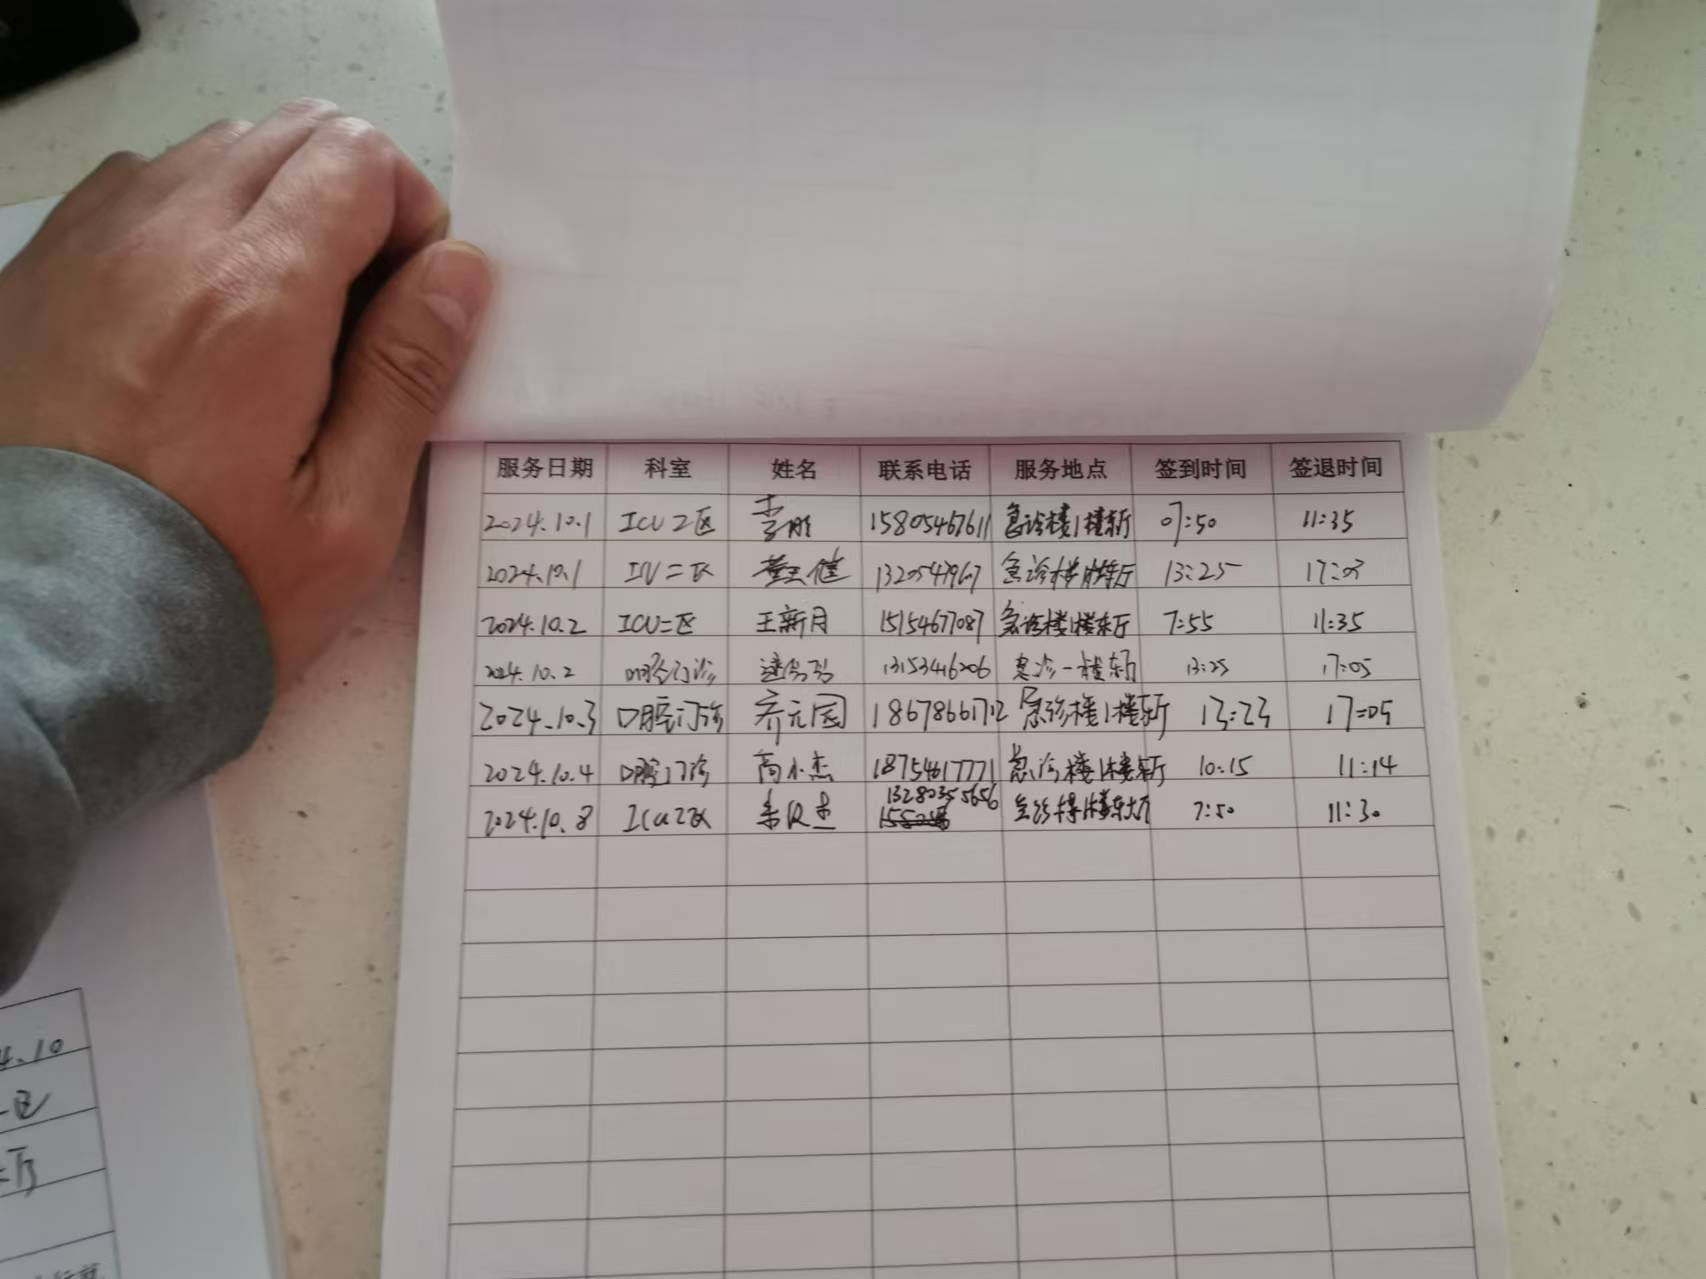 服务日期 科室 姓名 联系电话 服务地点 签到时间 签退时间
2024.10.1 ICU 2区 15805467611 急诊楼1楼东厅 07:50 11:35
2024.10.1 ICU二区 急诊楼1楼东厅 13:25 17:03
2024.10.2 ICU二区 王新月 15154677087 急诊楼1楼东厅 7:55 11:35
2024.10.2 口腔门诊 13153416206 急诊一楼东厅 13:25 17:05
2024.10.3 口腔门诊 齐元园 18678661712 急诊楼1楼东厅 13:23 17:05
2024.10.4 口腔门诊 高小杰 18754617771 急诊楼1楼东厅 10:15 11:14
2024.10.8 ICU2区 13280355656 急诊楼1楼东大厅 7:50 11:30
4.10